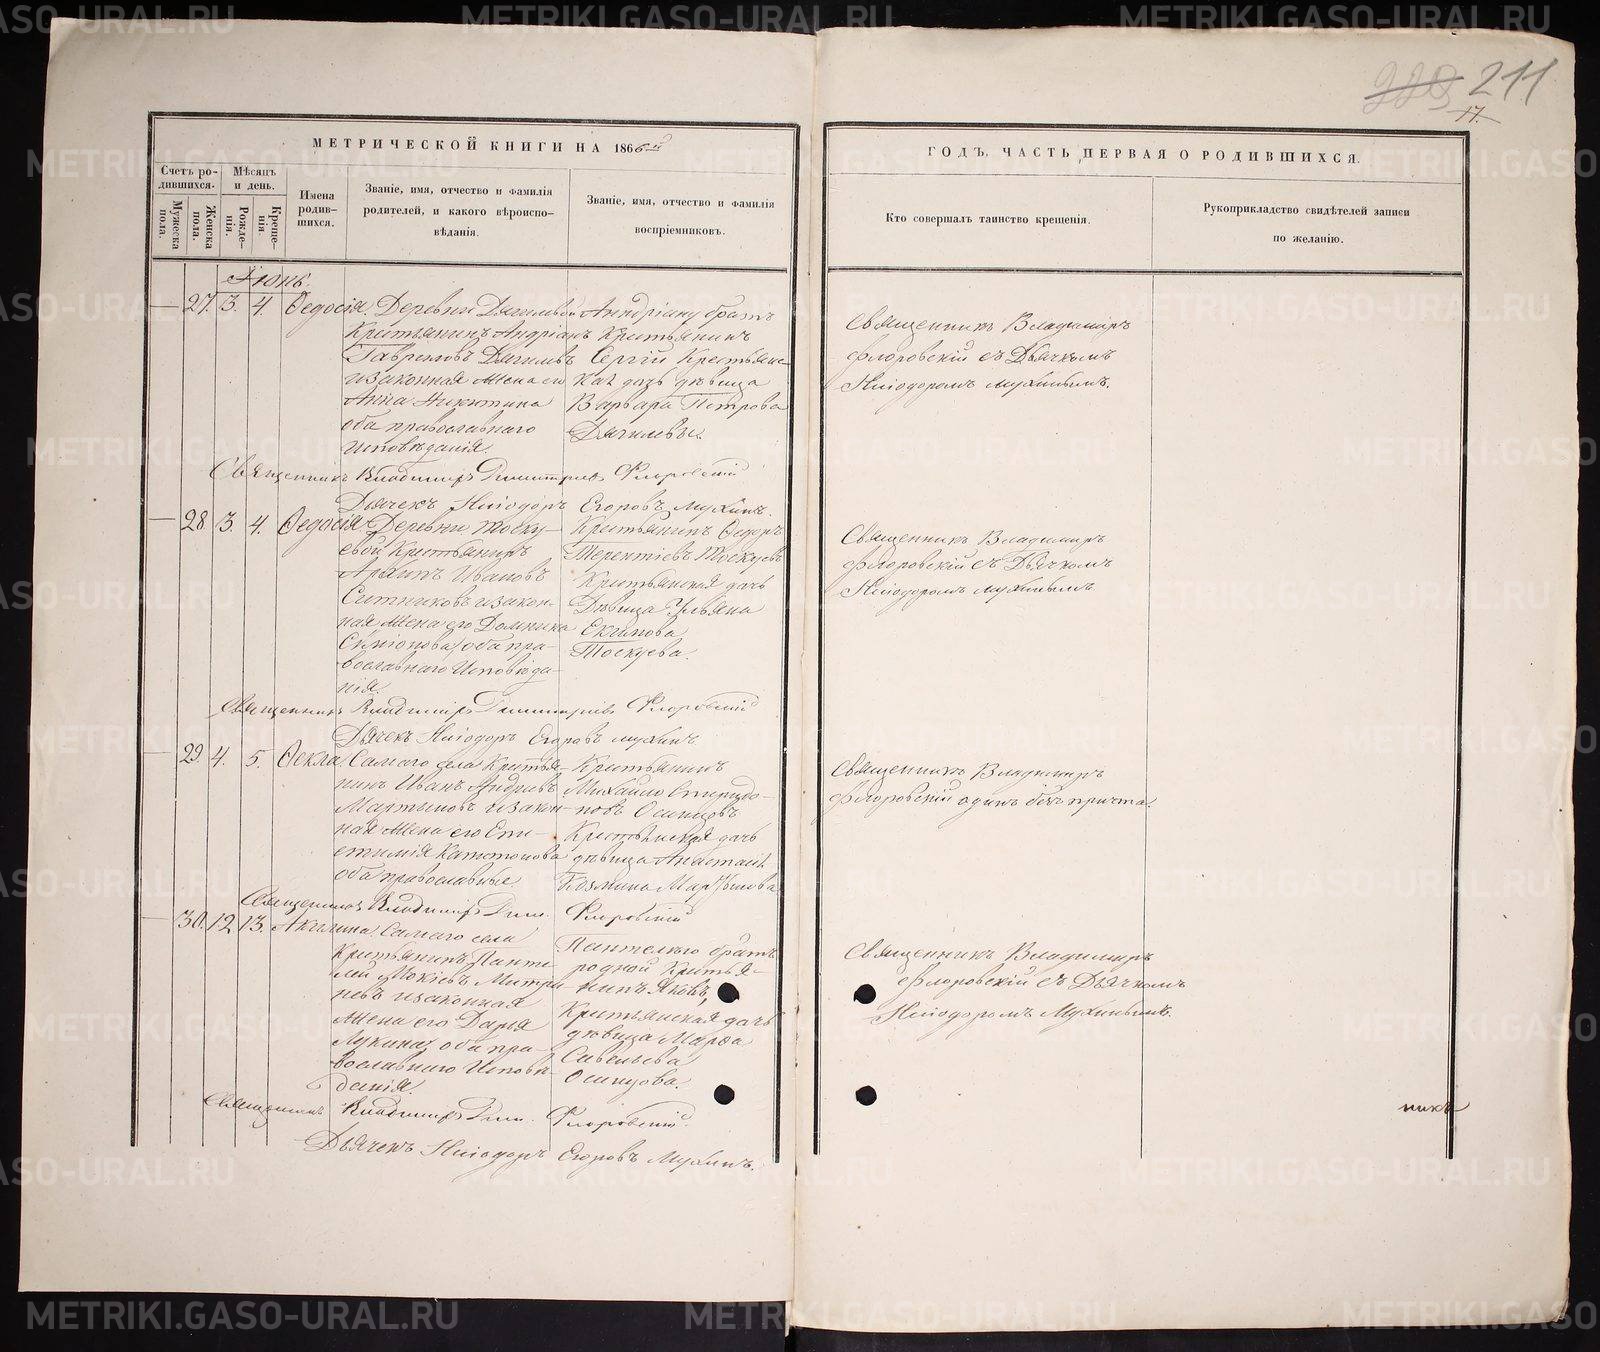 211
17.
МЕТРИЧЕСКОЙ КНИГИ НА 1866й
ГОДЪ, ЧАСТЬ ПЕРВАЯ О РОДИВШИХСЯ.
Счетъ родившихся.
Мужеска пола.
Женска пола.
Мѣсяцъ и день.
Рожденія.
Крещенія.
Имена родившихся.
Званіе, имя, отчество и фамилія
родителей, и какого вѣроиспо-
вѣданія.
Званіе, имя, отчество и фамилія
воспріемниковъ.
Кто совершалъ таинство крещенія.
Рукоприкладство свидѣтелей записи
по желанію.
Іюнь.
— 27. 3. 4. Ѳедосія.
Деревни Дягилевой
Крестьянинъ Андріанъ
Гавриловъ Дягилевъ
и законная жена его
Анна Никитина
оба православнаго
исповѣданія.
Андріану братъ
Крестьянинъ
Сергій Крестьянс-
кая дочь дѣвица
Варвара Петрова
Дягилевы.
Священникъ Владиміръ
Флоровскій съ Дьячкомъ
Иліодоромъ Мухинымъ.
Священникъ Владиміръ Димитріевъ Флоровскій
Дьячекъ Иліодоръ Егоровъ Мухинъ.
— 28 3. 4. Ѳедосія
Деревни Тоску-
евой Крестьянинъ
Иванъ
Ситниковъ и закон-
ная жена его Домника
оба пра-
вославнаго Исповѣда-
нія.
Крестьянинъ Ѳедоръ
Терентіевъ Тоскуевъ
Крестьянская дочь
Дѣвица Ульяна
Екимова
Тоскуева.
Священникъ Владиміръ
Флоровскій съ Дьячкомъ
Иліодоромъ Мухинымъ
Священникъ Владиміръ Димитріевъ Флоровскій
Дьячекъ Иліодоръ Егоровъ Мухинъ
— 29. 4. 5. Ѳекла
Самаго села Крестья-
нинъ Иванъ Андреевъ
Мартыновъ и закон-
ная жена его Епи-
стимія
оба православные
Крестьянинъ
Михайло Спиридо-
новъ Осинцовъ
Крестьянская дочь
дѣвица Анастасія
Козмина Мартынова
Священникъ Владиміръ
Флоровскій одинъ безъ причта.
Священникъ Владиміръ Дим. Флоровскій
— 30. 12 13. Акилина.
Самаго села
Крестьянинъ Панте-
лей Мокіевъ
и законная
жена его Дарья
Лукина оба пра-
вославнаго Исповѣ-
данія.
Пантелею братъ
родной Крестья-
нинъ Яковъ,
Крестьянская дочь
дѣвица Марѳа
Савельева
Осинцова.
Священникъ Владиміръ
Флоровскій съ Дьячкомъ
Иліодоромъ Мухинымъ.
Священникъ Владиміръ Дим. Флоровскій.
Дьячекъ Иліодоръ Егоровъ Мухинъ.
никъ
METRIKI.GASO-URAL.RU